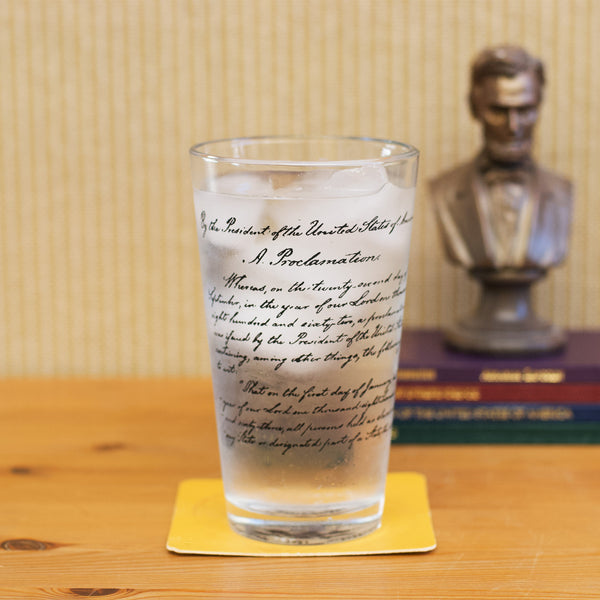 By the President of the United States of Americ
A Proclamation.
Whereas, on the twenty-second day o
September, in the year of our Lord one thous
eight hundred and sixty-two, a proclama
was issued by the President of the United St
containing, among other things, the followi
to wit:
"That on the first day of January, in
year of our Lord one thousand eight hundre
and sixty-three, all persons held as slaves
any State or designated part of a State, the
OF THE UNITED STATES OF AMERICA